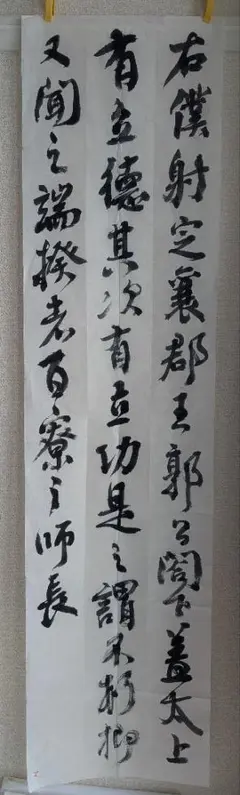 右僕射定襄郡王郭公閣下蓋太上
有立德其次有立功是之謂不朽抑
又聞之端揆者百寮之師長